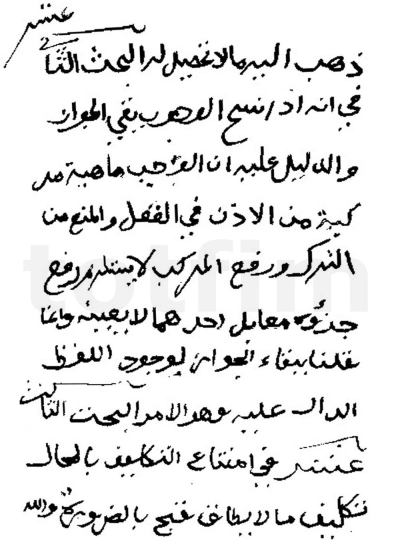 عشر
ذهب اليه مما لا تحصيل له البحث الثاني
في انه اذا نسخ الوجوب بقي الجواز
والدليل عليه ان الواجب ماهية مر
كبة من الاذن في الفعل والمنع من
الترك ورفع المركب لا يستلزم رفع
جزؤيه معا بل احدهما لا بعينه وانما
قلنا ببقاء الجواز لوجود اللفظ
الدال عليه وهو الامر البحث الثالث
عشر في امتناع التكليف بالمحال
تكليف ما لا يطاق قبيح بالضرورة والله
totfim